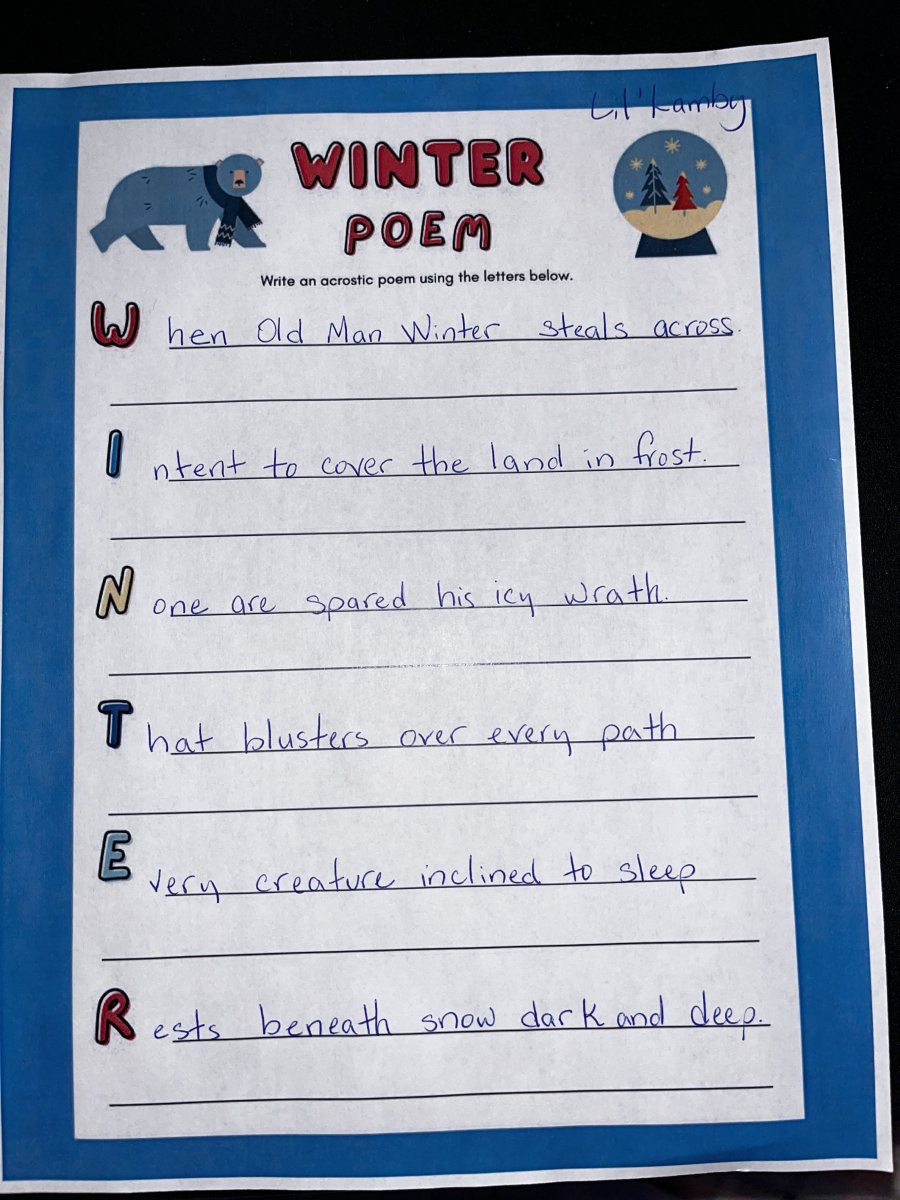 Lil' Kamby
WINTER
POEM
Write an acrostic poem using the letters below.
When Old Man Winter steals across.
Intent to cover the land in frost.
None are spared his icy wrath.
That blusters over every path
Every creature inclined to sleep
Rests beneath snow dark and deep.